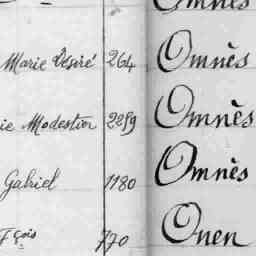 Omnès
Marie Désiré 264 Omnès
ie Modestine 2259 Omnès
Gabriel 1180 Omnès
Fçois 770 Onen